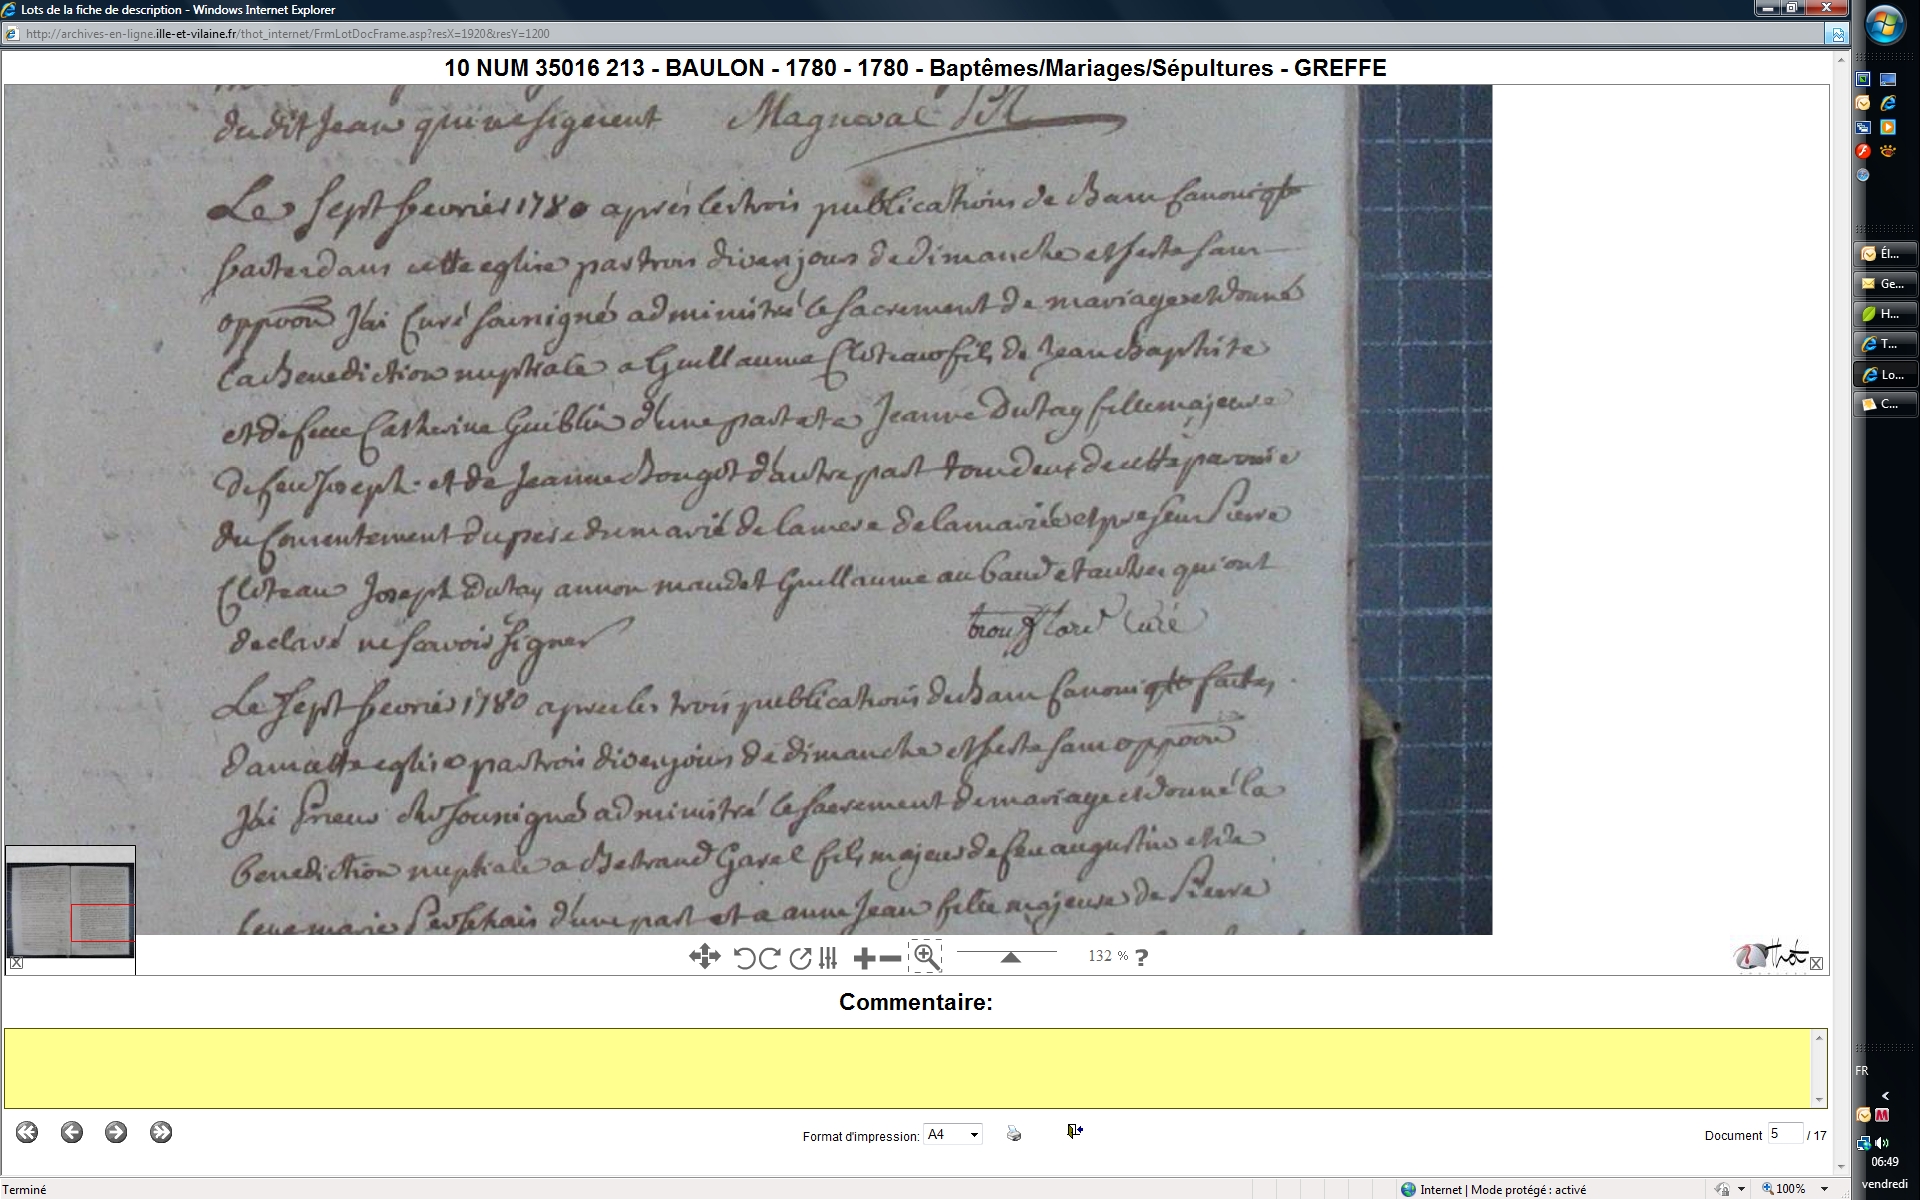 Lots de la fiche de description - Windows Internet Explorer
http://archives-en-ligne.ille-et-vilaine.fr/thot_internet/FrmLotDocFrame.asp?resX=1920&resY=1200
10 NUM 35016 213 - BAULON - 1780 - 1780 - Baptêmes/Mariages/Sépultures - GREFFE
du dit Jean qui ne signent
Le sept fevrier 1780 après les trois publications de bans canoniqts
faites dans cette eglise par trois divers jours de dimanche et feste sans
oppoon J'ai Curé sousigné administré le sacrement de mariage et donné
la benediction nuptiale a Guillaume Cloteau fils de Jean baptiste
et de feue Catherine Guiblin d'une part et a Jeanne Dutay fille majeure
de feu Joseph et de Jeanne bougot d'autre part tous deux de cette paroisse
du consentement du pere du marié de la mere de la mariée et presens Pierre
Cloteau Joseph Dutay maudet Guillaume aubaud et autres qui ont
declaré ne scavoir signer Curé
Le sept fevrier 1780 apres les trois publications de bans canoniqts faites
dans cette eglise par trois divers jours de dimanche et feste sans oppoon
J'ai Prieur sousigné administré le sacrement de mariage et donné la
benediction nuptiale a Bertrand Garel fils majeur de feu augustin et de
marie d'une part et a anne Jean fille majeure de Pierre
132 % ?
Thot
Commentaire:
Format d'impression: A4
Document 5 / 17
Terminé
Internet | Mode protégé : activé
100%
Él...
Ge...
H...
T...
Lo...
C...
FR
06:49
vendredi